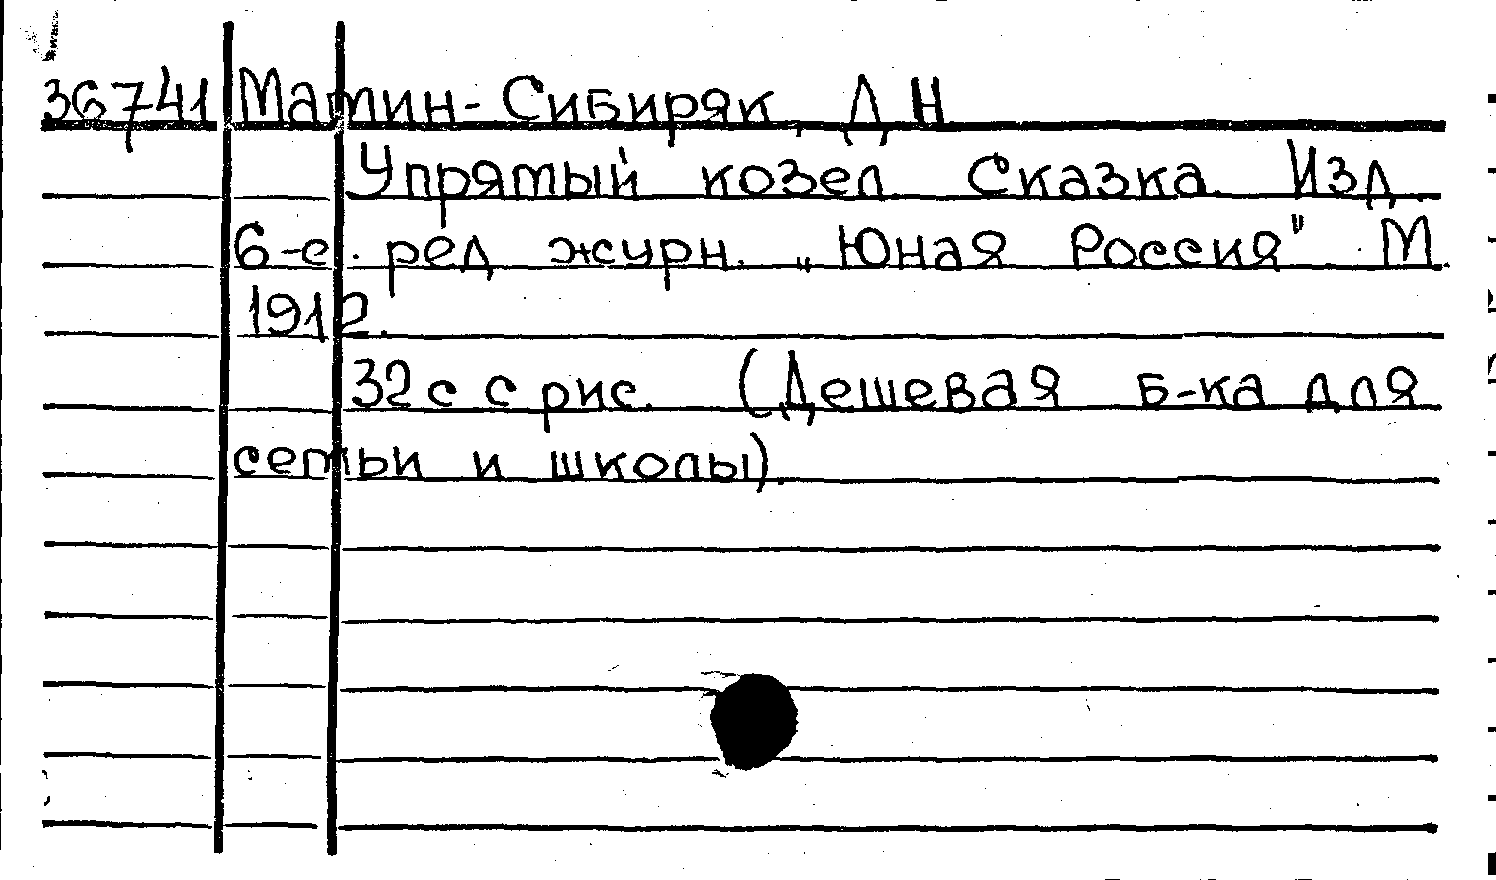 36741 Мамин-Сибиряк, Д Н
Упрямый козел. Сказка. Изд.
6-е. ред журн. „Юная Россия" М.
1912.
32 с с рис. (Дешевая б-ка для
семьи и школы).